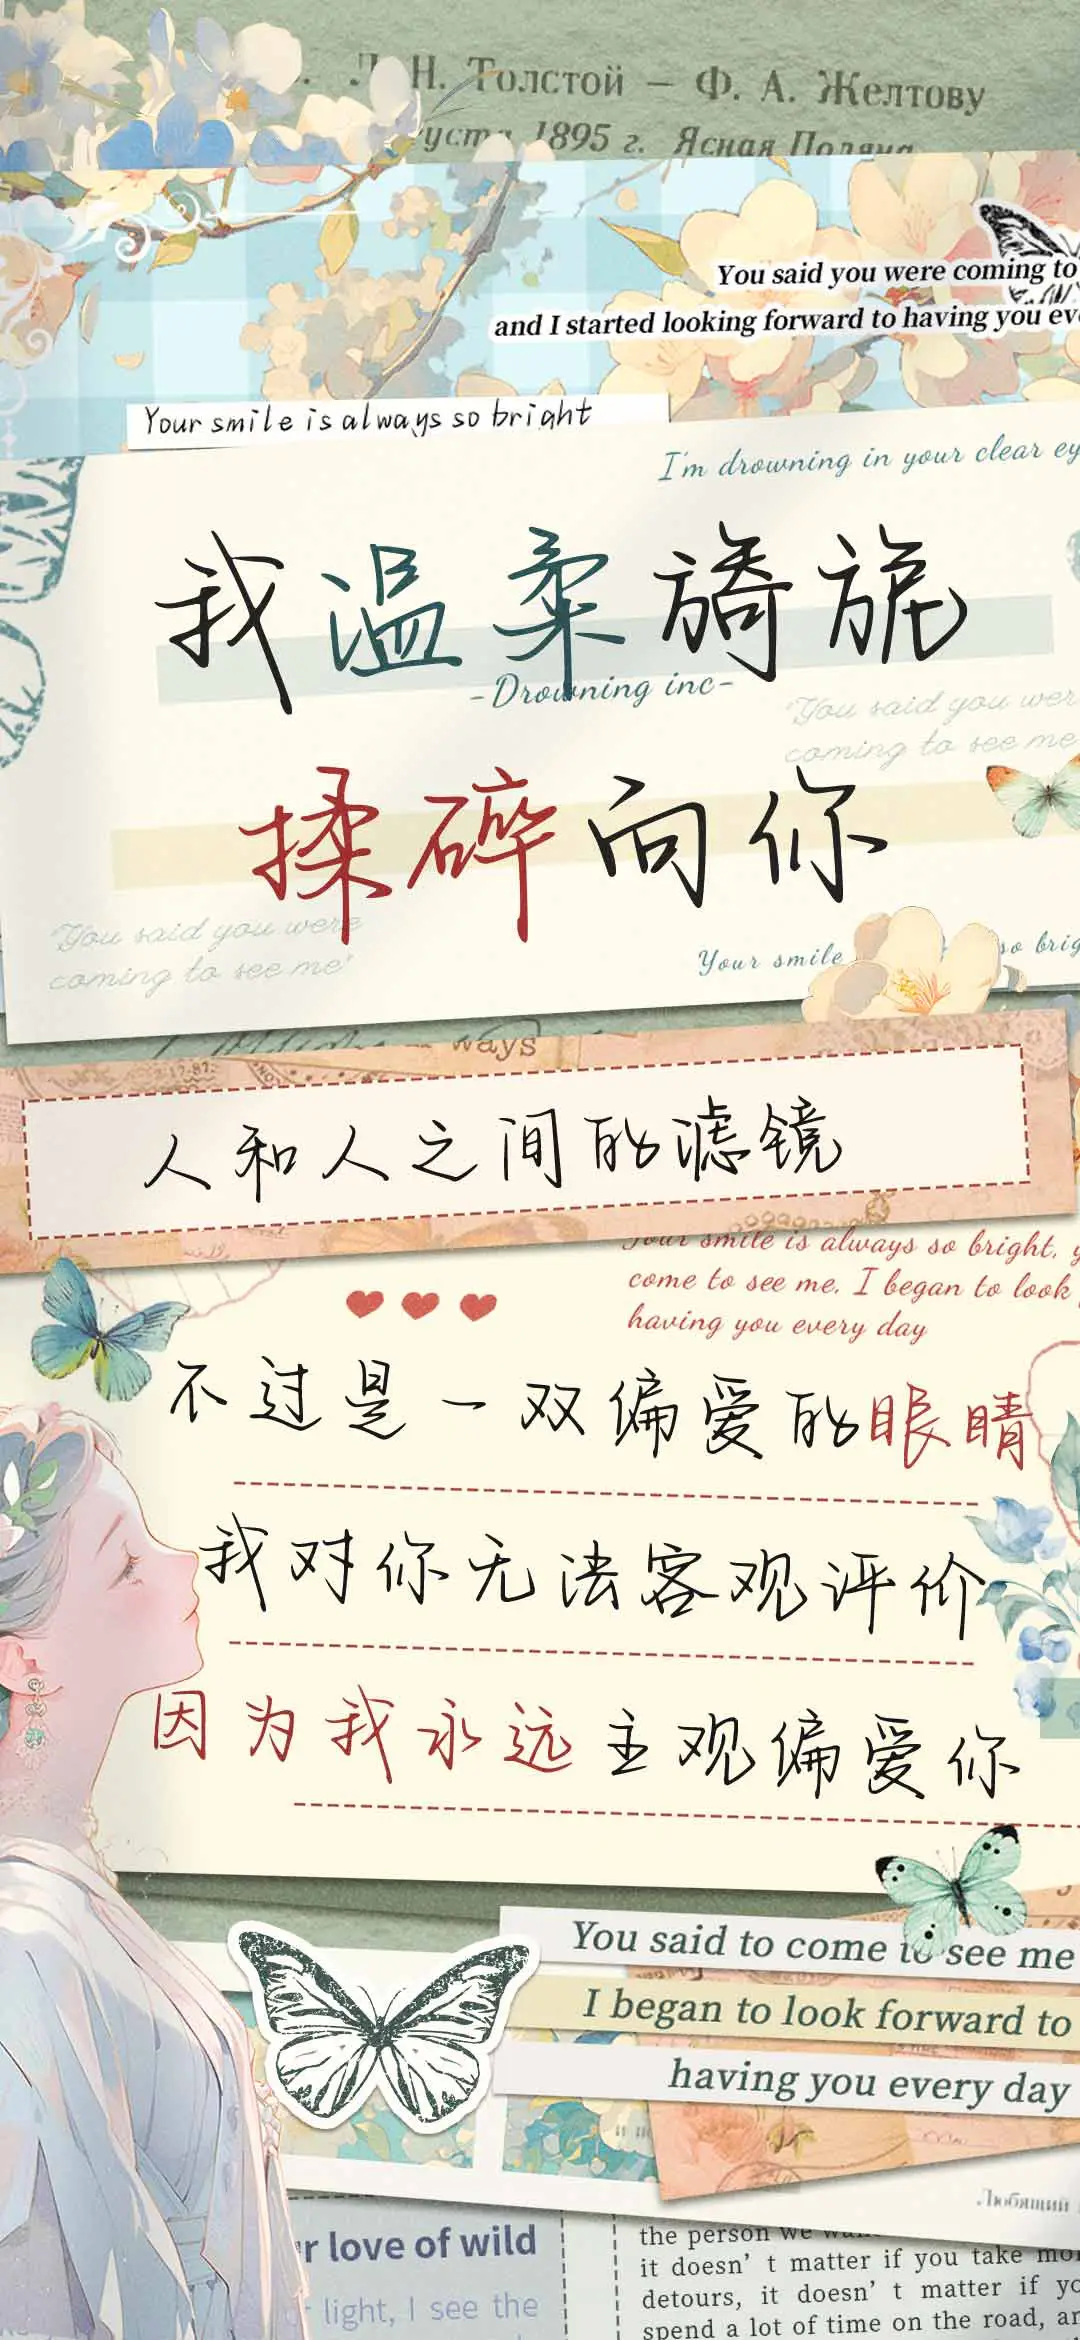 Н. Толстой — Ф. А. Желтову
1895 г. Ясная Поляна
You said you were coming to
and I started looking forward to having you
Your smile is always so bright
I'm drowning in your clear
我温柔旖旎
-Drowning inc-
"You said you were
coming to see me
揉碎向你
"You said you were
coming to see me"
Your smile so
ways
人和人之间的滤镜
Your smile is always so bright,
come to see me. I began to look
having you every day
不过是一双偏爱的眼睛
我对你无法客观评价
因为我永远主观偏爱你
You said to come to see me
I began to look forward to
having you every day
Любящий
love of wild
light, I see the
the person we
it doesn't matter if you take
detours, it doesn't matter if
spend a lot of time on the road,